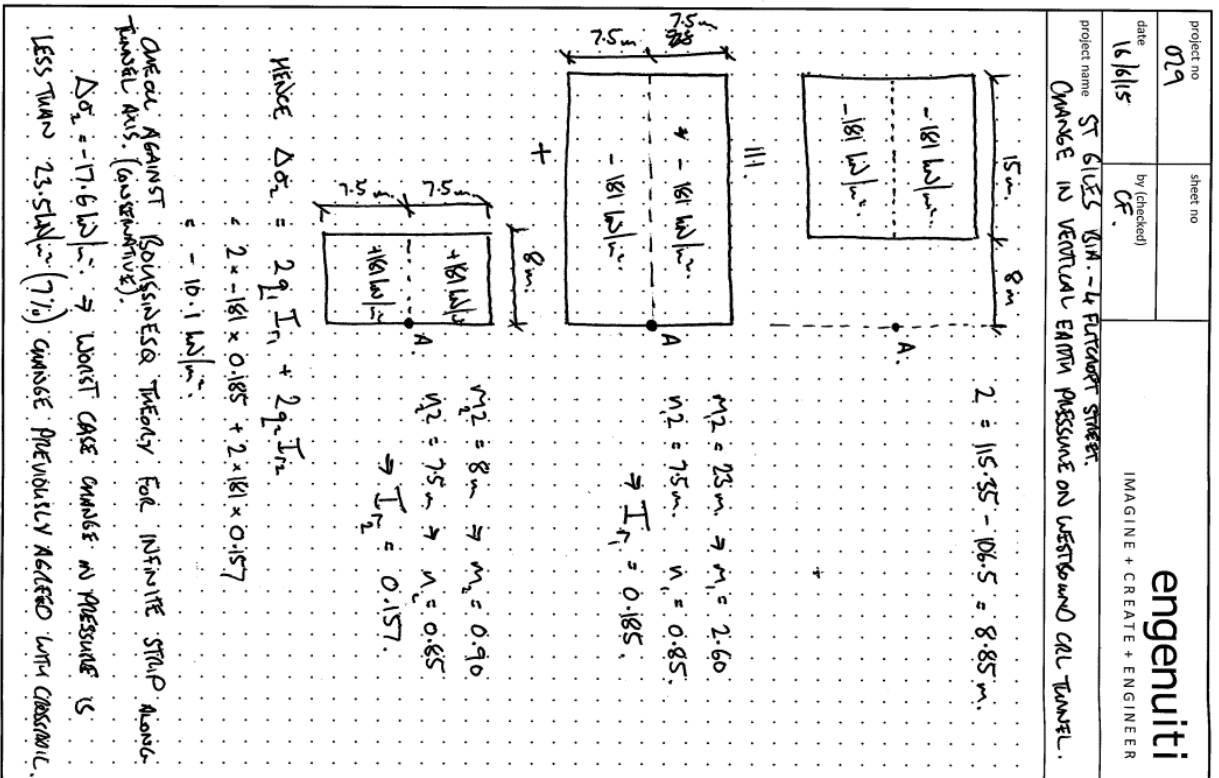 project no
029
sheet no
engenuiti
IMAGINE + CREATE + ENGINEER
date
16/6/15
by (checked)
CF.
project name
ST GILES - 4 FLITCROFT STREET.
CHANGE IN VERTICAL EARTH PRESSURE ON WESTBOUND CRL TUNNEL.
15m. 8m
-181 kN/m².
-181 kN/m².
A.
Z = 115.35 - 106.5 = 8.85 m.
III.
7.5m
7.5m
- 181 kN/m².
- 181 kN/m².
A
m₁z = 23m. ⇒ m₁ = 2.60
n₁z = 7.5m. n₁ = 0.85.
⇒ Iσ₁ = 0.185.
+
8m.
7.5m
7.5m
+181 kN/m²
+181 kN/m²
A.
m₂z = 8m ⇒ m₂ = 0.90
n₂z = 7.5m ⇒ n₂ = 0.85
⇒ Iσ₂ = 0.157.
HENCE Δσz = 2q₁Iσ₁ + 2q₂Iσ₂
= 2 × -181 × 0.185 + 2 × 181 × 0.157
= - 10.1 kN/m².
CHECK AGAINST BOUSSINESQ THEORY FOR INFINITE STRIP ALONG
TUNNEL AXIS. (CONSERVATIVE).
Δσz = -17.6 kN/m². ⇒ WORST CASE CHANGE IN PRESSURE IS
LESS THAN 23.5kN/m² (7%) CHANGE PREVIOUSLY AGREED WITH CROSSRAIL.